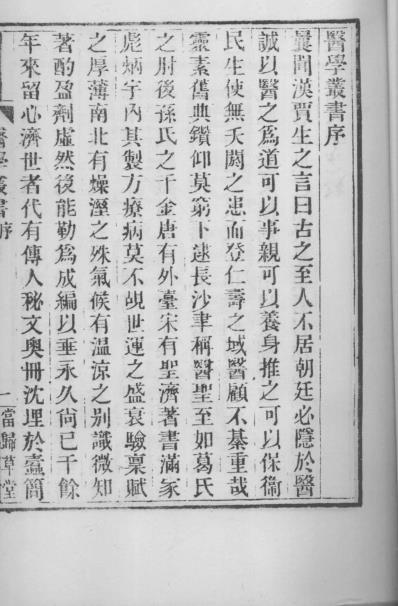 醫學叢書序
曩聞漢賈生之言曰古之至人不居朝廷必隱於醫
誠以醫之爲道可以事親可以養身推之可以保衞
民生使無夭閼之患而登仁壽之域醫顧不綦重哉
靈素舊典鑽仰莫窮下逮長沙聿稱醫聖至如葛氏
之肘後孫氏之千金唐有外臺宋有聖濟著書滿家
彪炳宇內其製方療病莫不覘世運之盛衰驗稟賦
之厚薄南北有燥溼之殊氣候有温涼之别識微知
著酌盈劑虛然後能勒爲成編以垂永久尙已千餘
年來留心濟世者代有傳人秘文奧冊沈埋於蠹簡
醫學叢書序
一當歸草堂